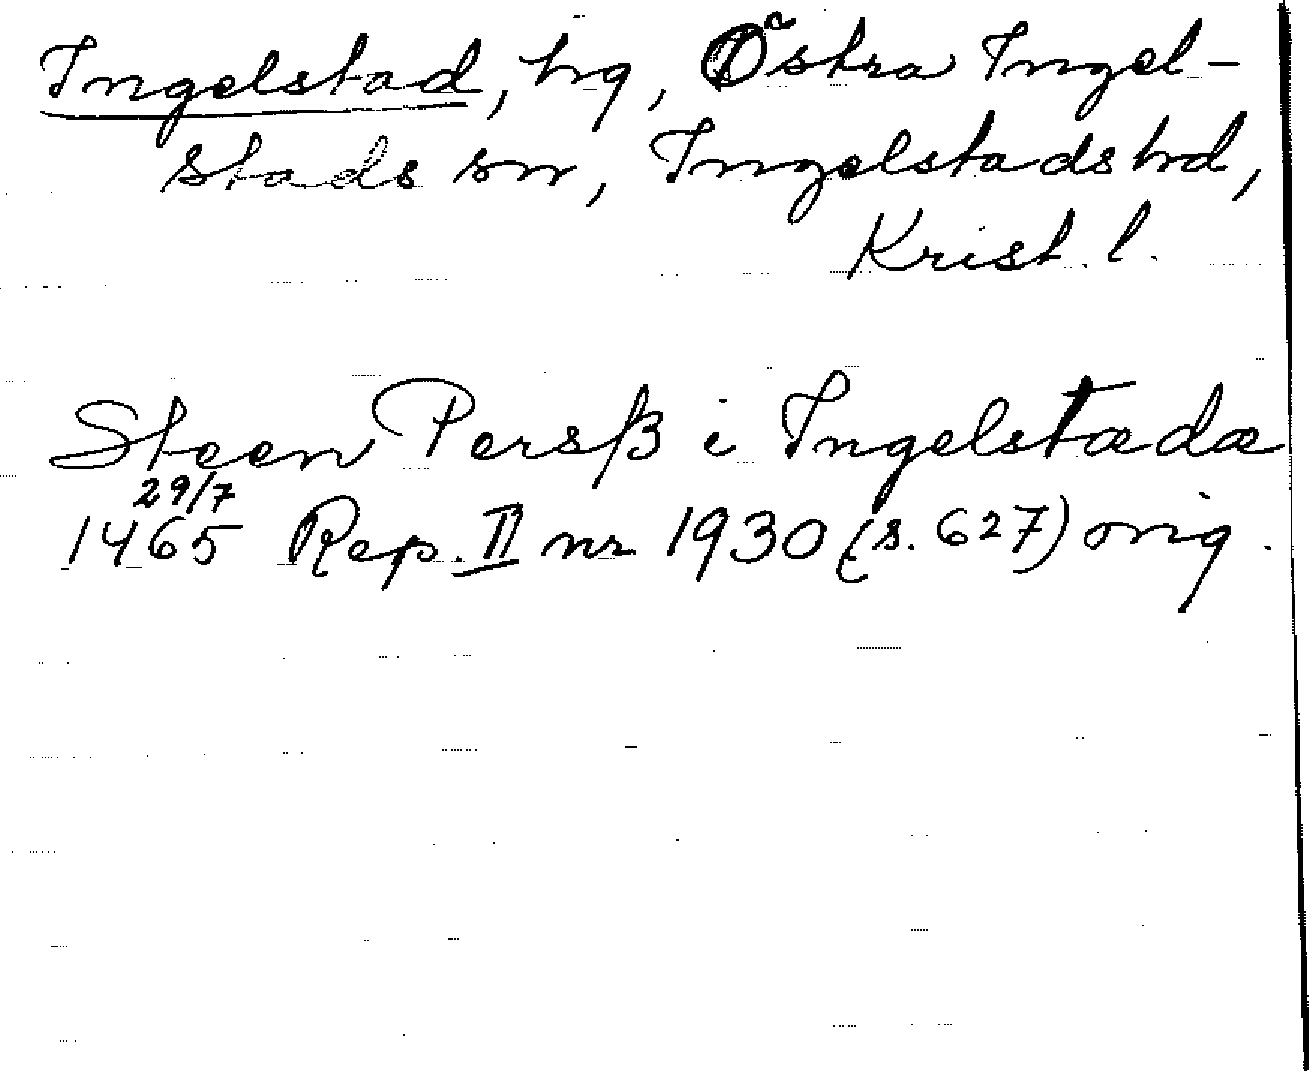 Ingelstad, hg, Östra Ingel-
stads sn, Ingelstads hd,
Krist. l.
Steen Persß i Ingelstædæ
29/7
1465 Rep. II nr 1930 (s. 627) orig.